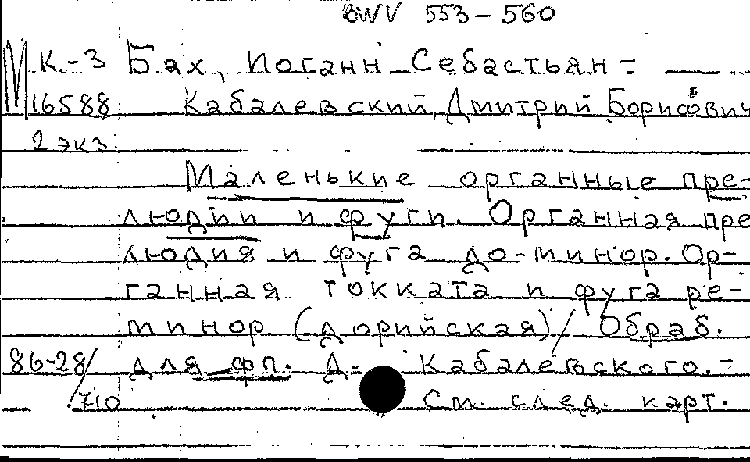 BWV 553-560
М К.-3 Бах, Иоганн Себастьян =
16588 Кабалевский, Дмитрий Борисович
2 экз.
Маленькие органные пре-
людии и фуги. Органная пре
людия и фуга до-минор. Ор-
ганная токката и фуга ре-
минор (дорийская)/ Обраб.
86-28/ для фп. Д. Кабалевского. -
710 См. след. карт.